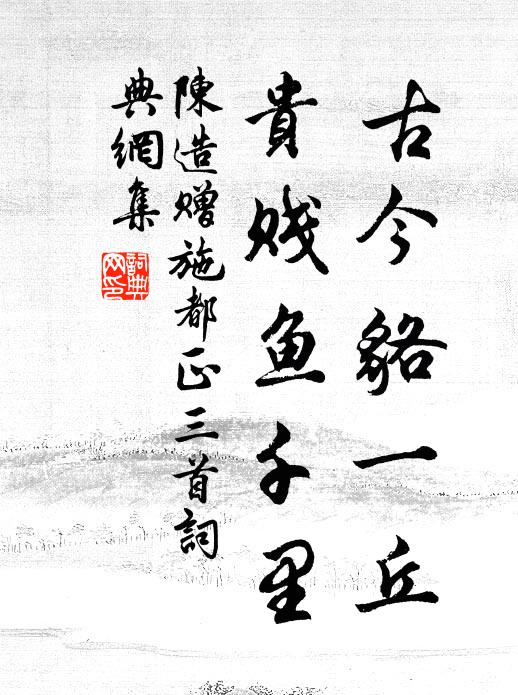 古今貉一丘
貴贱鱼千里
陳造赠施都正三首詞
典網集
詞典
网印